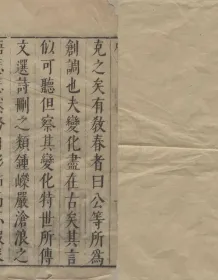 克之矣有敎春者曰公等所爲
創調也夫變化盡在古矣其言
似可聽但察其變化特世所傳
文選詩刪之類鍾嶸嚴滄浪之